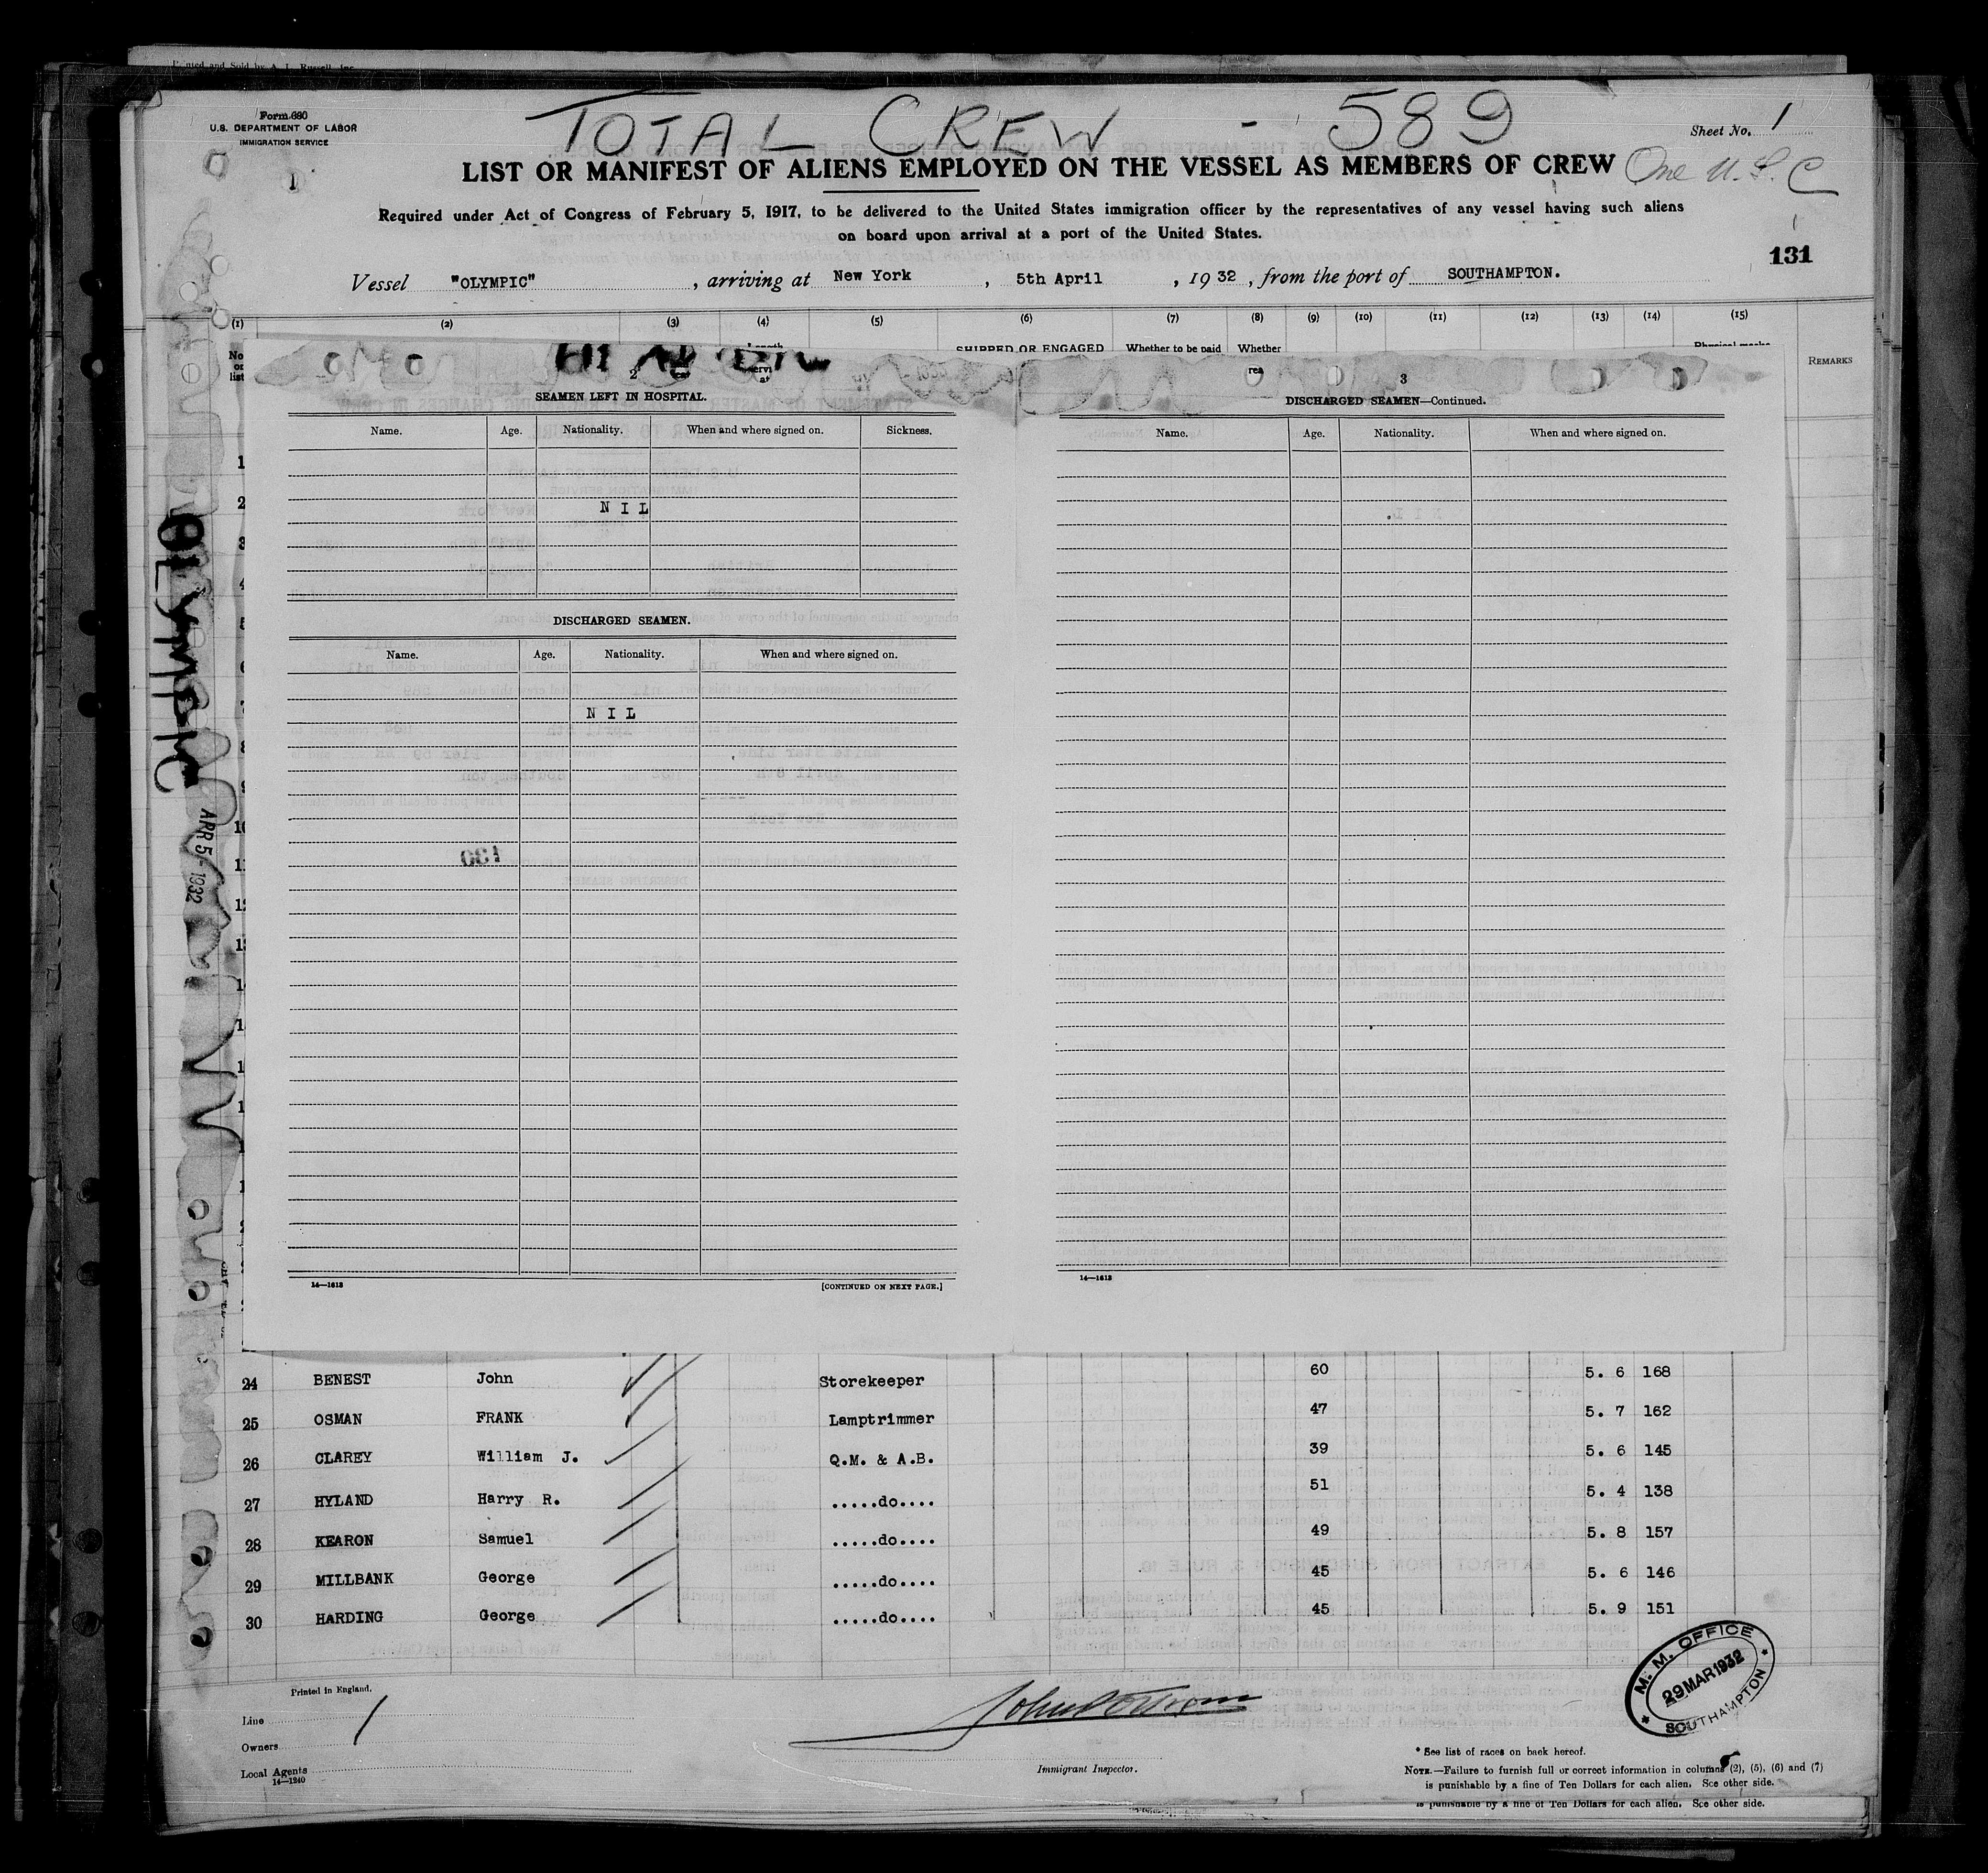 Printed and Sold by A. L. Russell, Inc.
Form 680
U.S. DEPARTMENT OF LABOR
IMMIGRATION SERVICE
TOTAL CREW - 589
Sheet No. 1
1
LIST OR MANIFEST OF ALIENS EMPLOYED ON THE VESSEL AS MEMBERS OF CREW
One U.S.C
Required under Act of Congress of February 5, 1917, to be delivered to the United States immigration officer by the representatives of any vessel having such aliens
on board upon arrival at a port of the United States.
131
Vessel "OLYMPIC", arriving at New York, 5th April, 1932, from the port of SOUTHAMPTON.
(1) (2) (3) (4) (5) (6) (7) (8) (9) (10) (11) (12) (13) (14) (15)
SHIPPED OR ENGAGED Whether to be paid Whether
REMARKS
2
SEAMEN LEFT IN HOSPITAL.
Name. Age. Nationality. When and where signed on. Sickness.
NIL
DISCHARGED SEAMEN.
Name. Age. Nationality. When and where signed on.
NIL
14—1613 [CONTINUED ON NEXT PAGE.]
3
DISCHARGED SEAMEN—Continued.
Name. Age. Nationality. When and where signed on.
14—1613
OLYMPIC
APR 5 - 1932
24 BENEST John Storekeeper 60 5. 6 168
25 OSMAN FRANK Lamptrimmer 47 5. 7 162
26 CLAREY William J. Q.M. & A.B. 39 5. 6 145
27 HYLAND Harry R. .....do.... 51 5. 4 138
28 KEARON Samuel .....do.... 49 5. 8 157
29 MILLBANK George .....do.... 45 5. 6 146
30 HARDING George .....do.... 45 5. 9 151
Printed in England.
Line
Owners
Local Agents
14—1240
1
Immigrant Inspector.
M. M. OFFICE
29 MAR 1932
SOUTHAMPTON
* See list of races on back hereof.
NOTE.—Failure to furnish full or correct information in columns (2), (5), (6) and (7)
is punishable by a fine of Ten Dollars for each alien. See other side.
is punishable by a fine of Ten Dollars for each alien. See other side.